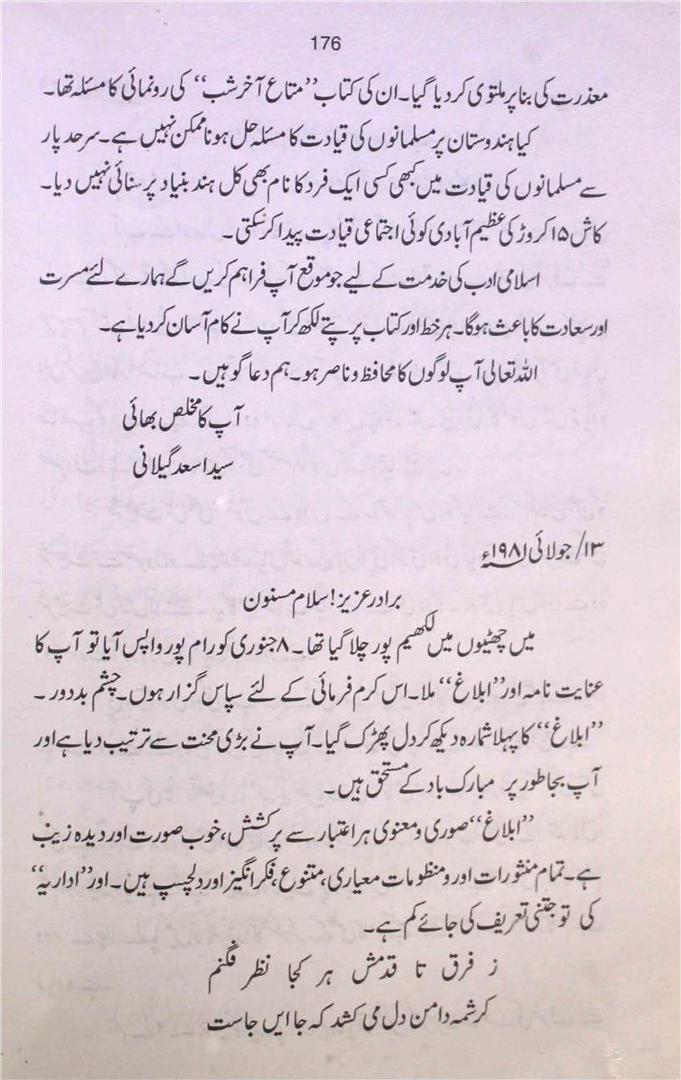 176
معذرت کی بنا پر ملتوی کر دیا گیا۔ ان کی کتاب ”متاع آخر شب“ کی رونمائی کا مسئلہ تھا۔
کیا ہندوستان پر مسلمانوں کی قیادت کا مسئلہ حل ہونا ممکن نہیں ہے۔ سرحد پار
سے مسلمانوں کی قیادت میں کبھی کسی ایک فرد کا نام بھی کل ہند بنیاد پر سنائی نہیں دیا۔
کاش ۱۵ کروڑ کی عظیم آبادی کوئی اجتماعی قیادت پیدا کر سکتی۔
اسلامی ادب کی خدمت کے لیے جو موقع آپ فراہم کریں گے ہمارے لئے مسرت
اور سعادت کا باعث ہوگا۔ ہر خط اور کتاب پر پتے لکھ کر آپ نے کام آسان کر دیا ہے۔
اللہ تعالی آپ لوگوں کا محافظ و ناصر ہو۔ ہم دعا گو ہیں۔
آپ کا مخلص بھائی
سید اسعد گیلانی
۱۳/ جولائی ۱۹۸۱ء
برادر عزیز! سلام مسنون
میں چھٹیوں میں لکھیم پور چلا گیا تھا۔ ۸ جنوری کو رام پور واپس آیا تو آپ کا
عنایت نامہ اور ”ابلاغ“ ملا۔ اس کرم فرمائی کے لئے سپاس گزار ہوں۔ چشم بد دور۔
”ابلاغ“ کا پہلا شمارہ دیکھ کر دل پھڑک گیا۔ آپ نے بڑی محنت سے ترتیب دیا ہے اور
آپ بجا طور پر مبارک باد کے مستحق ہیں۔
”ابلاغ“ صوری و معنوی ہر اعتبار سے پرکشش، خوب صورت اور دیدہ زیب
ہے۔ تمام منثورات اور و منظومات معیاری، متنوع، فکر انگیز اور دلچسپ ہیں۔ اور ”اداریہ“
کی تو جتنی تعریف کی جائے کم ہے۔
ز فرق تا قدمش ہر کجا نظر فگنم
کرشمہ دامن دل می کشد کہ جا ایں جاست